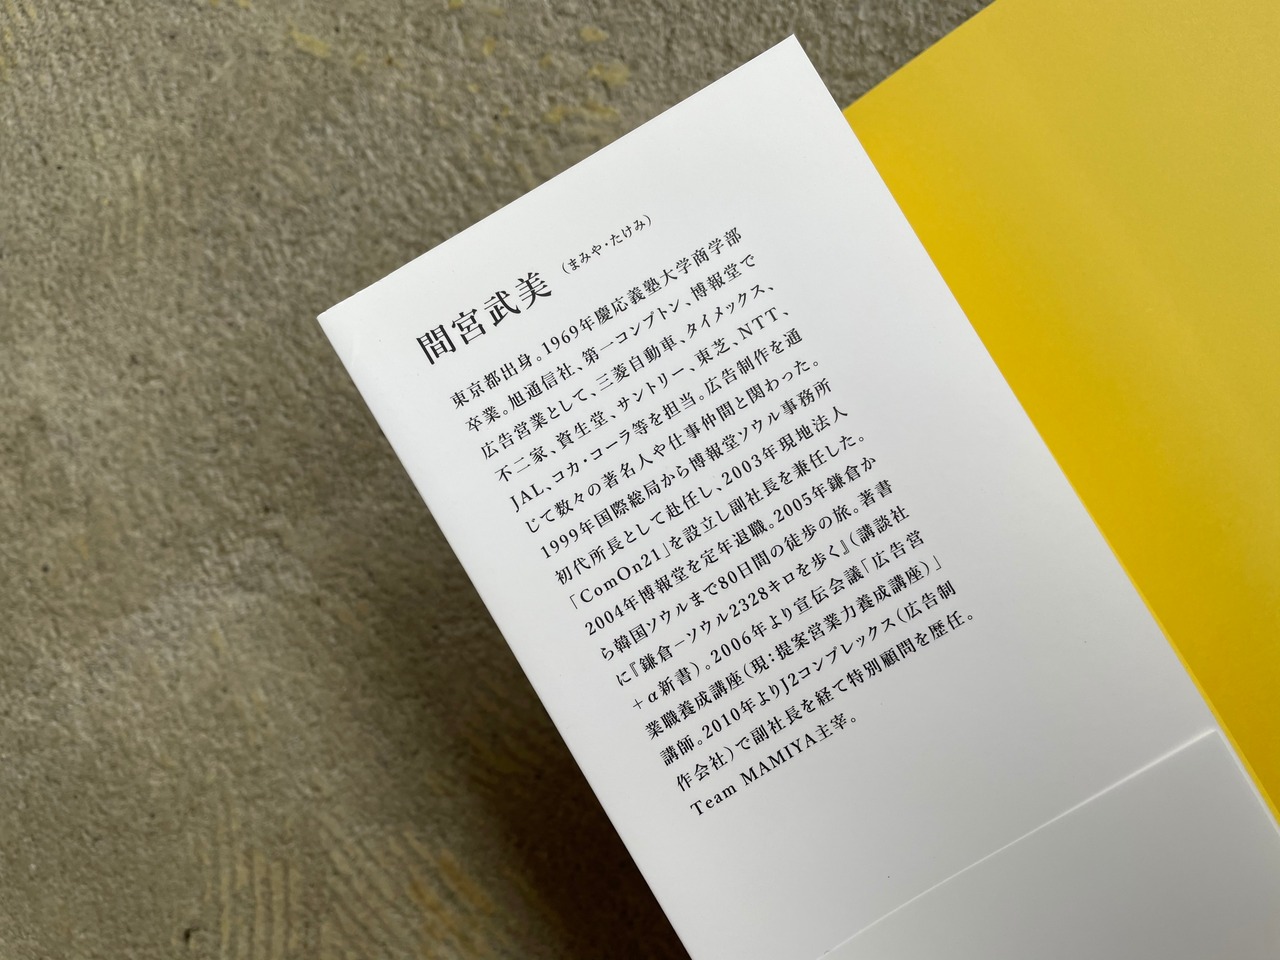 間宮武美 (まみや・たけみ)
東京都出身。1969年慶応義塾大学商学部
卒業。旭通信社、第一コンプトン、博報堂で
広告営業として、三菱自動車、タイメックス、
不二家、資生堂、サントリー、東芝、NTT、
JAL、コカ・コーラ等を担当。広告制作を通
じて数々の著名人や仕事仲間と関わった。
1999年国際総局から博報堂ソウル事務所
初代所長として赴任し、2003年現地法人
「ComOn21」を設立し副社長を兼任した。
2004年博報堂を定年退職。2005年鎌倉か
ら韓国ソウルまで80日間の徒歩の旅。著書
に『鎌倉−ソウル2328キロを歩く』(講談社
+α新書)。2006年より宣伝会議「広告営
業職養成講座(現:提案営業力養成講座)」
講師。2010年よりJ2コンプレックス(広告制
作会社)で副社長を経て特別顧問を歴任。
Team MAMIYA主宰。